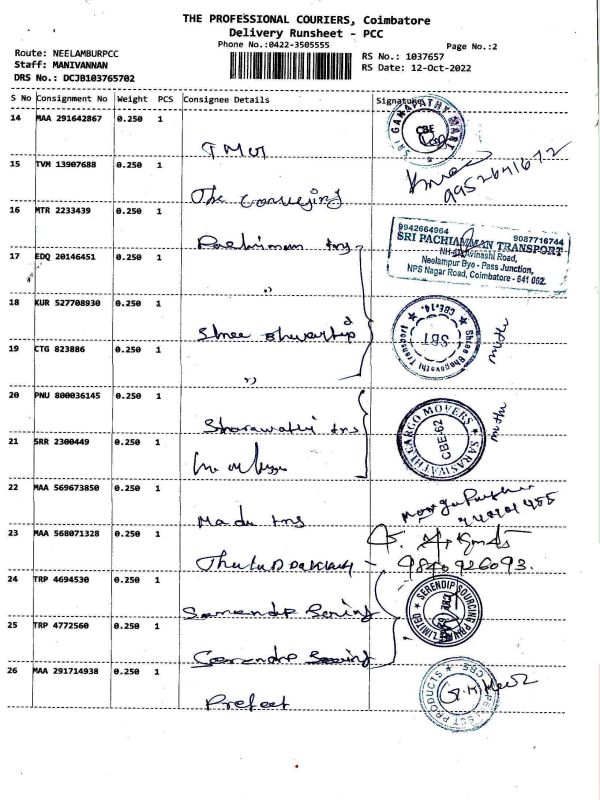 THE PROFESSIONAL COURIERS, Coimbatore
Delivery Runsheet - PCC
Phone No.:0422-3505555
Page No.:2
Route: NEELAMBURPCC
Staff: MANIVANNAN
DRS No.: DCJB103765702
RS No.: 1037657
RS Date: 12-Oct-2022
S No Consignment No Weight PCS Consignee Details Signature
14 MAA 291642867 0.250 1
SRI GANAPATHY MART CBE
15 TVM 13907688 0.250 1
The
9952641672
16 MTR 2233439 0.250 1
17 EDQ 20146451 0.250 1
"
9942664964 9087716744
SRI PACHIAMMAN TRANSPORT
NH- Avinashi Road,
Neelampur Bye - Pass Junction,
NPS Nagar Road, Coimbatore - 641 062.
18 KUR 527708930 0.250 1
Shree
Shree Bhagavathi Transport CBE-14. SBT
muthu
19 CTG 823886 0.250 1
"
20 PNU 800036145 0.250 1
Sharawathi tns
SARASWATHI CARGO MOVERS CBE-62
muthu
21 SRR 2300449 0.250 1
22 MAA 569673850 0.250 1
Madu tns
23 MAA 568071328 0.250 1
9840926093.
24 TRP 4694530 0.250 1
SERENDIP SOURCING PRIVATE LIMITED
25 TRP 4772560 0.250 1
26 MAA 291714938 0.250 1
Prefect
PRODUCTS CBE